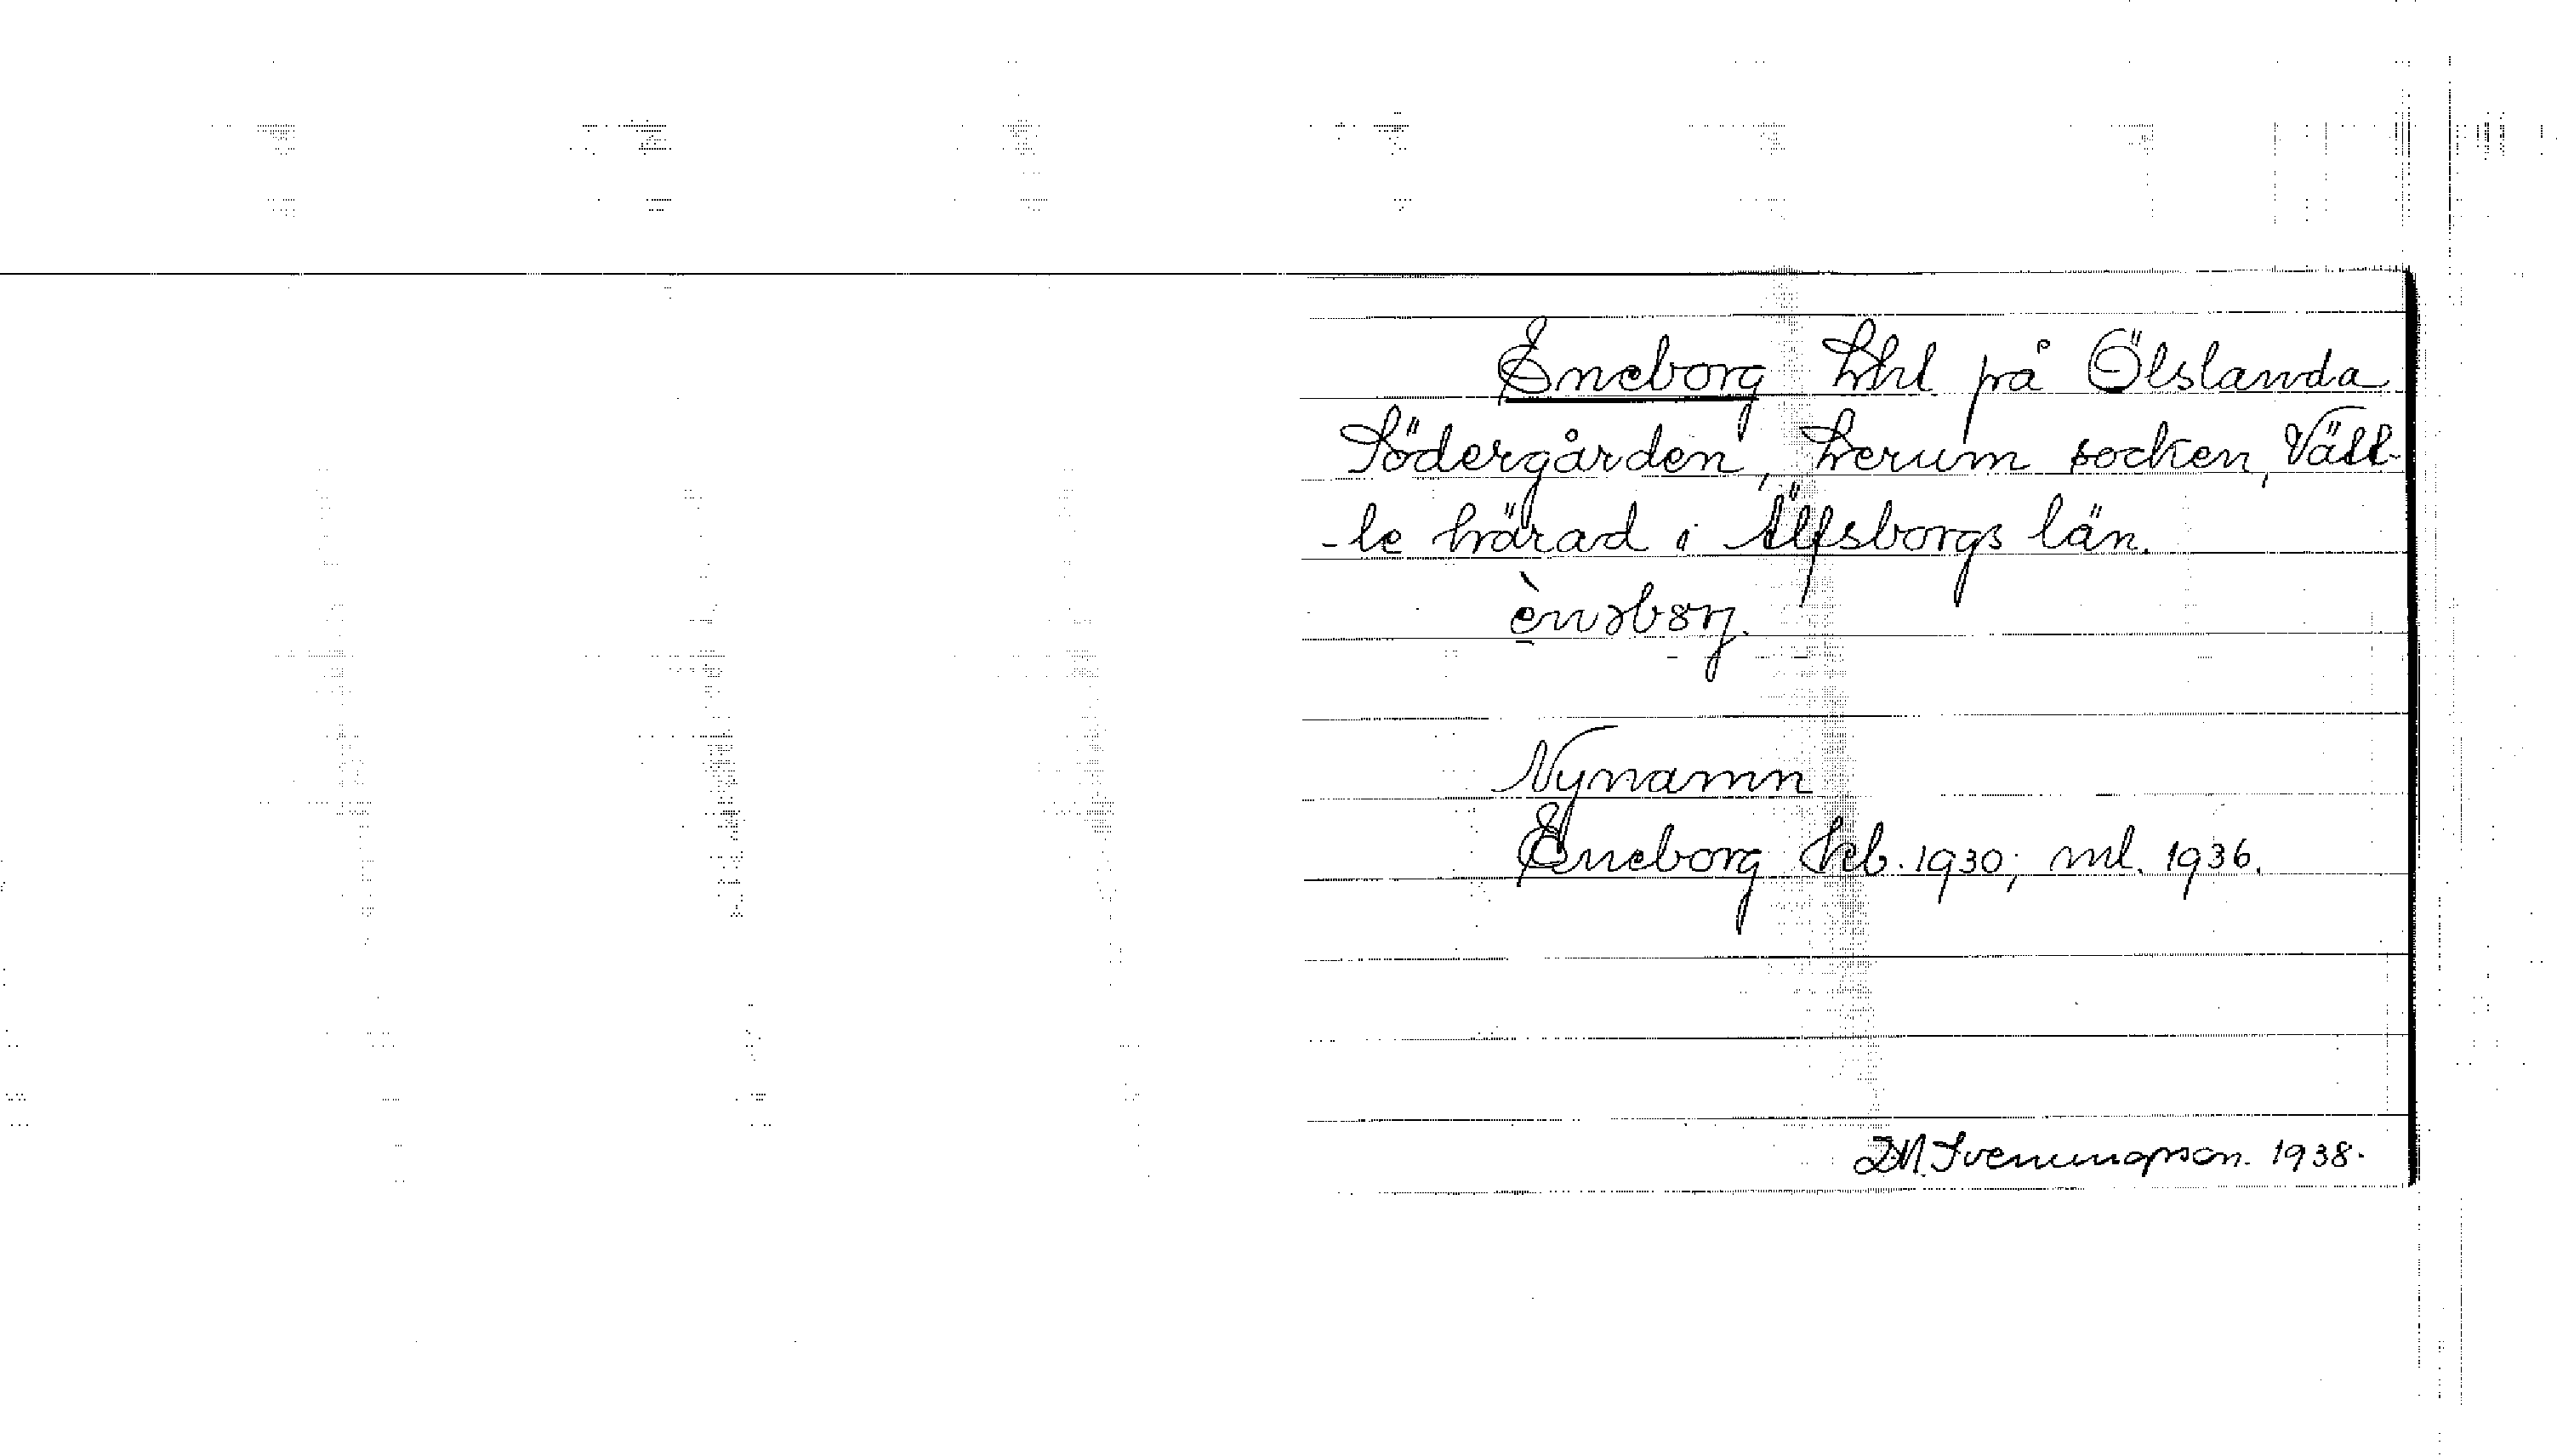 Eneborg lht på Ölslanda
Södergården, Lerum socken, Vätt-
-le härad i Älfsborgs län.
Nynamn
Eneborg kb. 1930; ml. 1936.
D.M. Svenungsson. 1938.